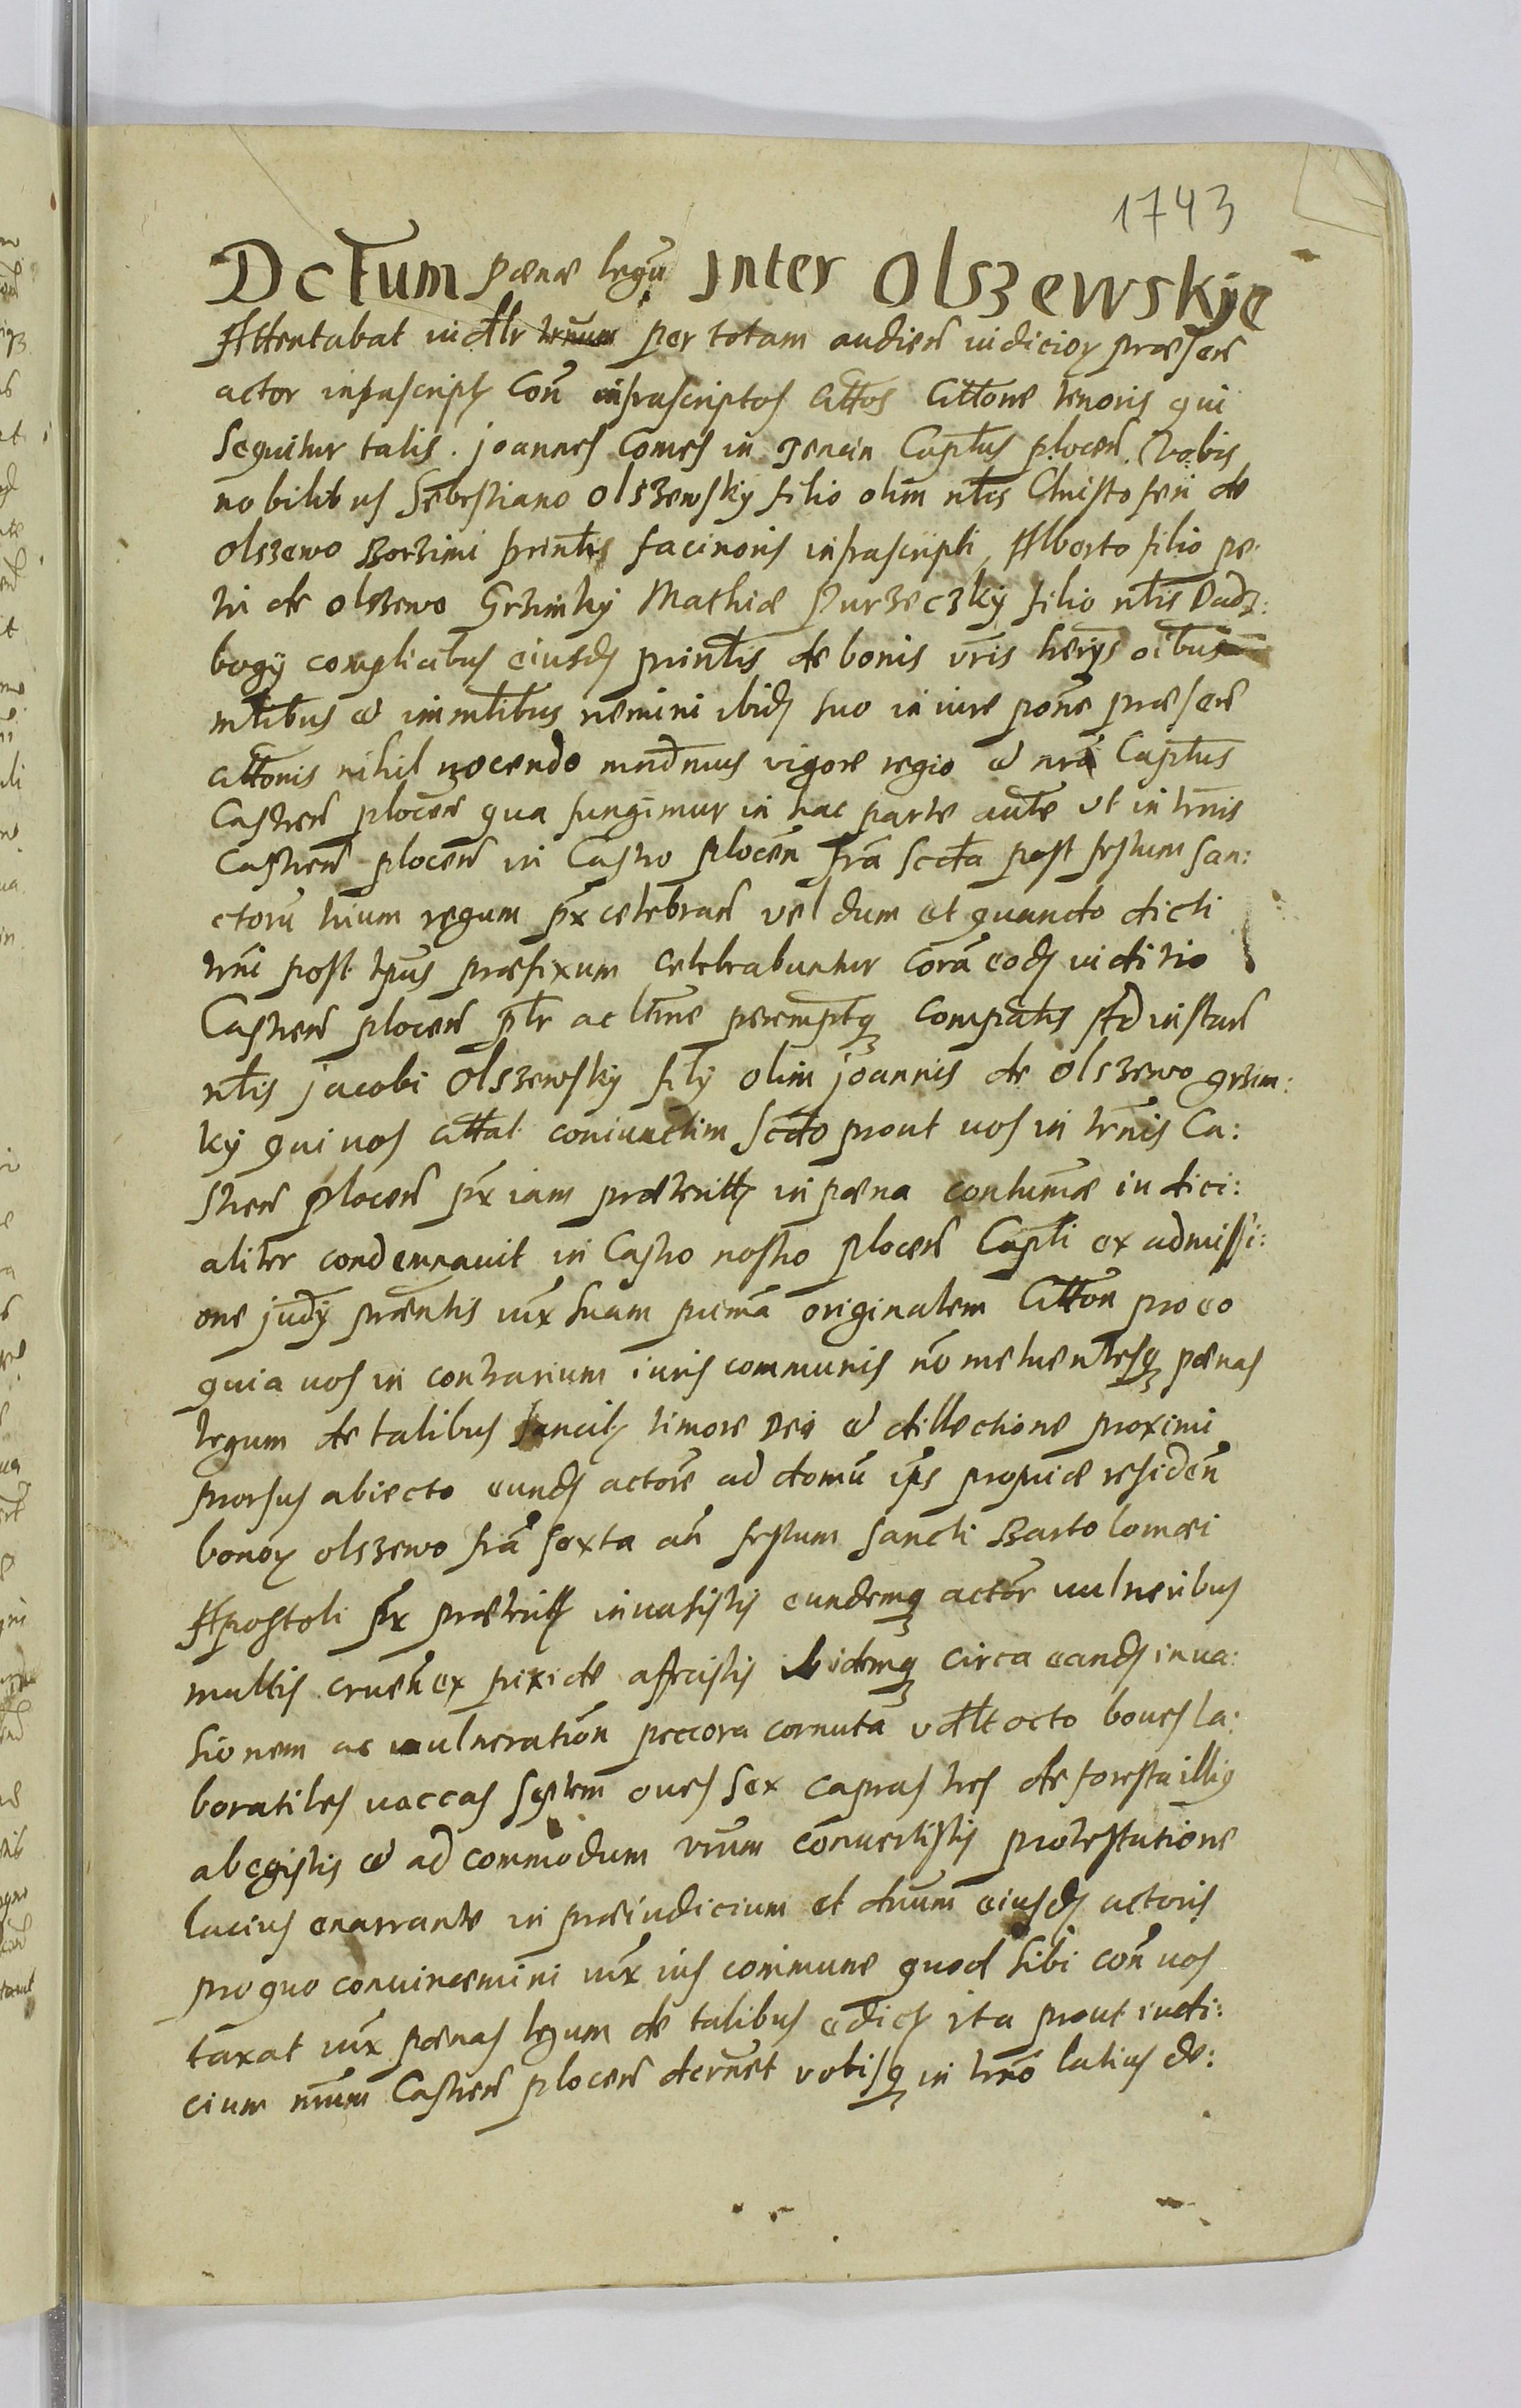 1743
Dctum pænæ legū Inter Olszewskye
Attentabat iudlr trnum per totam audien̄ iudicior præsen̄
actor infrascript Con̄ infrascriptos Cittos Cittone tenoris qui
Sequitur talis. Joannes Comes in Tencin Captus plocen̄. Vobis
nobilibus Sebestiano Olszewsky filio olim nlis Christoferi de
Olszewo Borzimi prinlis facinoris infrascripti, Alberto filio pe:
tri de olszewo Grzimky Mathiæ Purzeczky filio nlis Dadz:
bogy complicibus eiusd prinlis de bonis vris herys oibus
mlibus et immlibus nemini ibid suo in iure pone præsen̄
cittonis nihil nocendo mndmus vigore regio et nra Captus
Castren̄ plocen̄ qua fungimur in hac parte aute Vt in trnis
Castren̄ plocen̄ in Castro plocen̄ fra Scda post festum San:
ctorū trium regum px celebran̄ vel dum et quando dicti
trni post tpus præfixum Celebrabuntur Corā eod iuditio
Castren̄ plocen̄ plr ac ltme perempteq Compatis Ad instan̄
nlis Jacobi Olszewsky fily olim Joannis de Olszewo grzim:
ky qui vos cittat coniunctim Scdo prout vos in trnis Ca:
stren̄ plocen̄ px iam præteritt in pæna contumæ iudici:
aliter condemnauit in Castro nostro plocen̄ Capti ex admissi:
one judy præntis iux suam primā originalem Citton̄ pro eo
quia vos in contrarium iuris communis nō metuentesq pænas
legum de talibus sancit timore Dei et dillectione proximi
prorsus abiecto eund actorē ad domū ips propriæ residen̄
bonor olszewo fra sexta an̄ festum Sancti Bartolomæi
Apostoli px præteritt inuasistis eundemq actor̄ vulneribus
multis cruen̄ ex pixide affecistis ibidemq circa eand inua:
sionem ac vulneration̄ peccora cornuta vdlt octo boues la:
boratiles vaccas septem oues sex capras tres de foresta illiq
abegistis et ad commodum vrum conuertistis protestatione
lacius enarrante in præiudicium et dnum eiusd actoris
pro quo conuincemini iux ius commune quod sibi con̄ vos
taxat iux pænas legum de talibus edict ita prout iudi:
cium nrum Castren̄ plocen̄ decrnet vobisq in trno latius de: